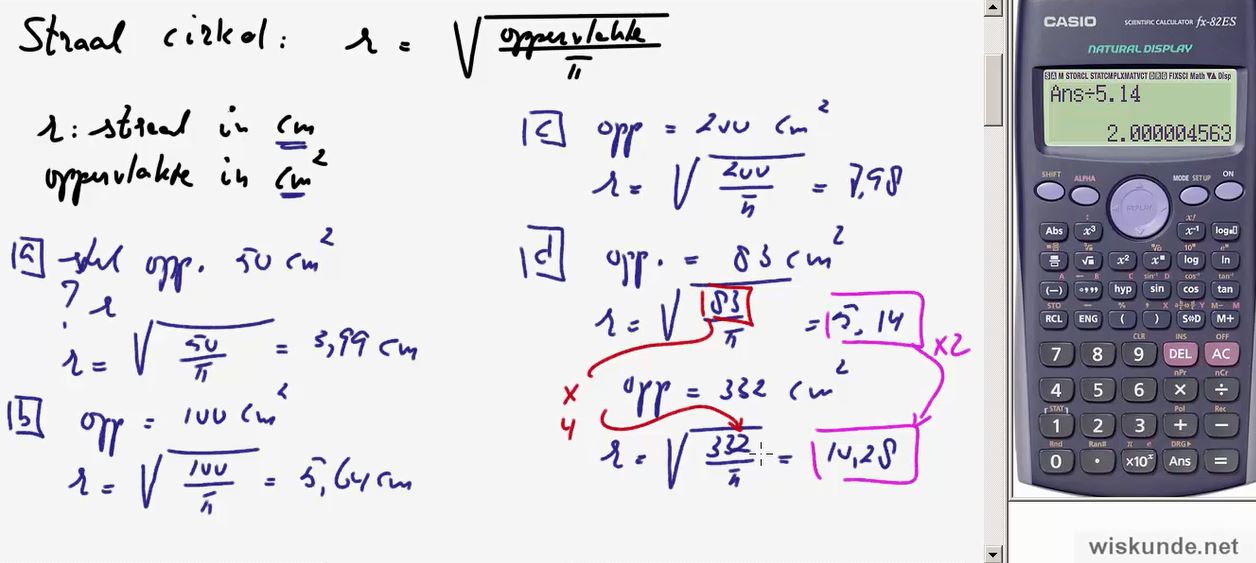 Straal cirkel: r = √(oppervlakte/π)
r: straal in cm
oppervlakte in cm²
a stel opp. 50 cm²
? r
r = √(50/π) = 3,99 cm
b opp = 100 cm²
r = √(100/π) = 5,64 cm
c opp = 200 cm²
r = √(200/π) = 7,98
d opp. = 83 cm²
r = √(83/π) = 5,14
x2
x
4
opp = 332 cm²
r = √(332/π) = 10,28
CASIO
SCIENTIFIC CALCULATOR fx-82ES
NATURAL DISPLAY
Ans÷5.14
2.000004563
SHIFT ALPHA MODE SETUP ON
Abs x³ x⁻¹ log
√ x² log ln
(−) hyp sin cos tan
STO
RCL ENG ( ) S⇔D M+
INS OFF
7 8 9 DEL AC
nPr nCr
4 5 6 × ÷
[STAT] Pol Rec
1 2 3 + −
Rnd Ran# π e DRG▸
0 • ×10ˣ Ans =
wiskunde.net